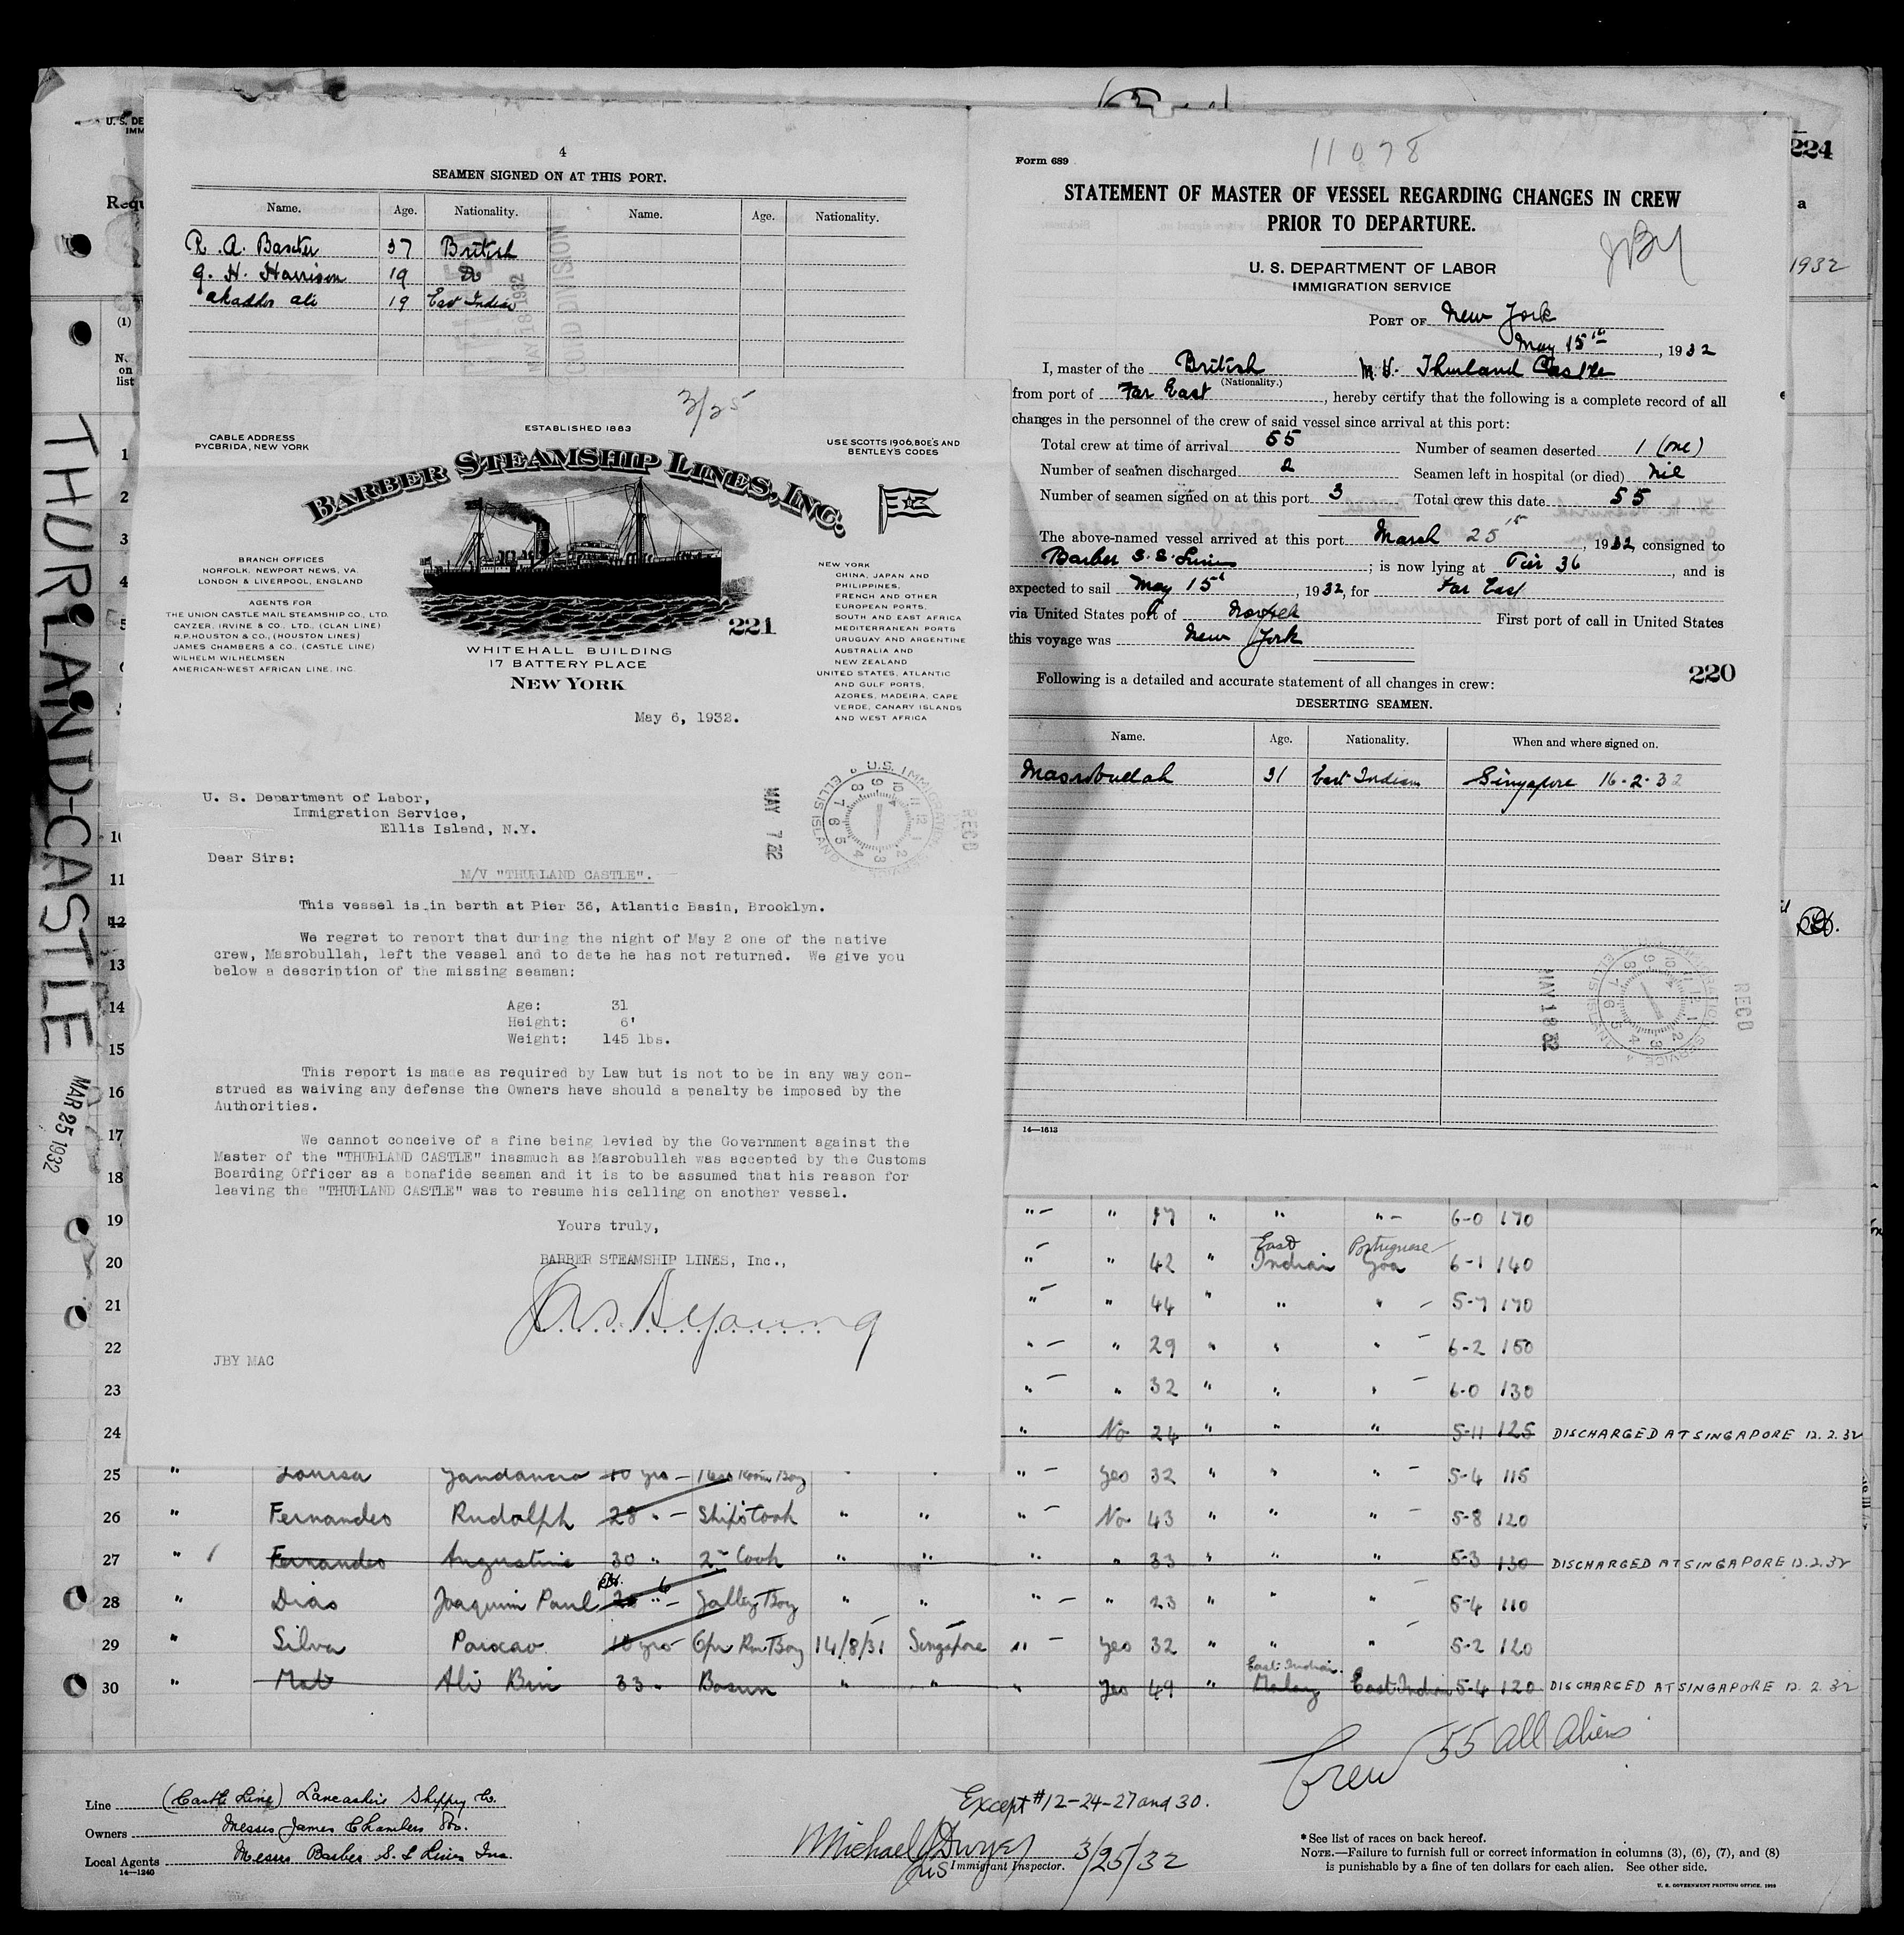 4
SEAMEN SIGNED ON AT THIS PORT.
Name. Age. Nationality. Name. Age. Nationality.
R. A. Baxter 37 British
G. H. Harrison 19 Do
Ali 19 East Indian
MAY 18 1932
Form 689
11078
STATEMENT OF MASTER OF VESSEL REGARDING CHANGES IN CREW
PRIOR TO DEPARTURE.
JBY
U. S. DEPARTMENT OF LABOR
IMMIGRATION SERVICE
PORT OF New York
May 15th, 1932
I, master of the British M.V. Thurland Castle
(Nationality.)
from port of Far East, hereby certify that the following is a complete record of all
changes in the personnel of the crew of said vessel since arrival at this port:
Total crew at time of arrival 55 Number of seamen deserted 1 (one)
Number of seamen discharged 2 Seamen left in hospital (or died) nil
Number of seamen signed on at this port 3 Total crew this date 55
The above-named vessel arrived at this port March 25th, 1932, consigned to
Barber S. S. Lines; is now lying at Pier 36, and is
expected to sail May 15th, 1932, for Far East
via United States port of Norfolk First port of call in United States
this voyage was New York
220
Following is a detailed and accurate statement of all changes in crew:
DESERTING SEAMEN.
Name. Age. Nationality. When and where signed on.
Masrobullah 31 East Indian Singapore 16-2-32
REC'D
MAY 18 32
14—1613
224
a
1932
U. S. DE
IMM
Requ
(1)
No.
on
list
THURLAND-CASTLE
MAR 25 1932
3/25
CABLE ADDRESS
PYCBRIDA, NEW YORK
ESTABLISHED 1883
USE SCOTTS 1906, BOE'S AND
BENTLEY'S CODES
BARBER STEAMSHIP LINES, INC.
BRANCH OFFICES
NORFOLK, NEWPORT NEWS, VA.
LONDON & LIVERPOOL, ENGLAND
AGENTS FOR
THE UNION CASTLE MAIL STEAMSHIP CO., LTD.
CAYZER, IRVINE & CO., LTD., (CLAN LINE)
R.P. HOUSTON & CO., (HOUSTON LINES)
JAMES CHAMBERS & CO., (CASTLE LINE)
WILHELM WILHELMSEN
AMERICAN-WEST AFRICAN LINE, INC.
NEW YORK
CHINA, JAPAN AND
PHILIPPINES,
FRENCH AND OTHER
EUROPEAN PORTS,
SOUTH AND EAST AFRICA
MEDITERRANEAN PORTS
URUGUAY AND ARGENTINE
AUSTRALIA AND
NEW ZEALAND
UNITED STATES, ATLANTIC
AND GULF PORTS,
AZORES, MADEIRA, CAPE
VERDE, CANARY ISLANDS
AND WEST AFRICA
221
WHITEHALL BUILDING
17 BATTERY PLACE
NEW YORK
May 6, 1932.
U. S. Department of Labor,
Immigration Service,
Ellis Island, N.Y.
MAY 7 32
U.S. IMMIGRATION SERVICE ELLIS ISLAND
REC'D
Dear Sirs:
M/V "THURLAND CASTLE".
This vessel is in berth at Pier 36, Atlantic Basin, Brooklyn.
We regret to report that during the night of May 2 one of the native
crew, Masrobullah, left the vessel and to date he has not returned. We give you
below a description of the missing seaman:
Age: 31
Height: 6'
Weight: 145 lbs.
This report is made as required by Law but is not to be in any way con-
strued as waiving any defense the Owners have should a penalty be imposed by the
Authorities.
We cannot conceive of a fine being levied by the Government against the
Master of the "THURLAND CASTLE" inasmuch as Masrobullah was accepted by the Customs
Boarding Officer as a bonafide seaman and it is to be assumed that his reason for
leaving the "THURLAND CASTLE" was to resume his calling on another vessel.
Yours truly,
BARBER STEAMSHIP LINES, Inc.,
Jas. B Young
JBY MAC
1
2
3
4
5
10
11
12
13
14
15
16
17
18
19 " " 47 " " " 6-0 170
20 " " 42 " East Indian Portuguese Goa 6-1 140
21 " " 44 " " " 5-7 170
22 " " 29 " " " 6-2 150
23 " " 32 " " " 6-0 130
24 " No 24 " " " 5-11 125 DISCHARGED AT SINGAPORE 12.2.32
25 " Louisa 10 yrs Mess Room Boy " " " Yes 32 " " " 5-4 115
26 " Fernandes Rudolph 28 " Ship's Cook " " " No 43 " " " 5-8 120
27 " Fernandes Augustine 30 " 2nd Cook " " " " 33 " " " 5-3 130 DISCHARGED AT SINGAPORE 12.2.32
28 " Dias Joaquim Paul 6 " Galley Boy " " " " 23 " " " 5-4 110
29 " Silva Paixao 10 yrs Rm Boy 14/8/31 Singapore " Yes 32 " " " 5-2 120
30 " Mat Ali Bin 33 " Bosun " " " Yes 49 " East Indian Malay East Indian 5-4 120 DISCHARGED AT SINGAPORE 12.2.32
Crew 55 all aliens
Except #12-24-27 and 30.
Line (Castle Line) Lancashire Shipping Co.
Owners Messrs James Chambers & Co.
Local Agents Messrs Barber S. S Lines Inc.
14—1240
Michael J Dwyer 3/25/32
US Immigrant Inspector.
* See list of races on back hereof.
NOTE.—Failure to furnish full or correct information in columns (3), (6), (7), and (8)
is punishable by a fine of ten dollars for each alien. See other side.
U. S. GOVERNMENT PRINTING OFFICE